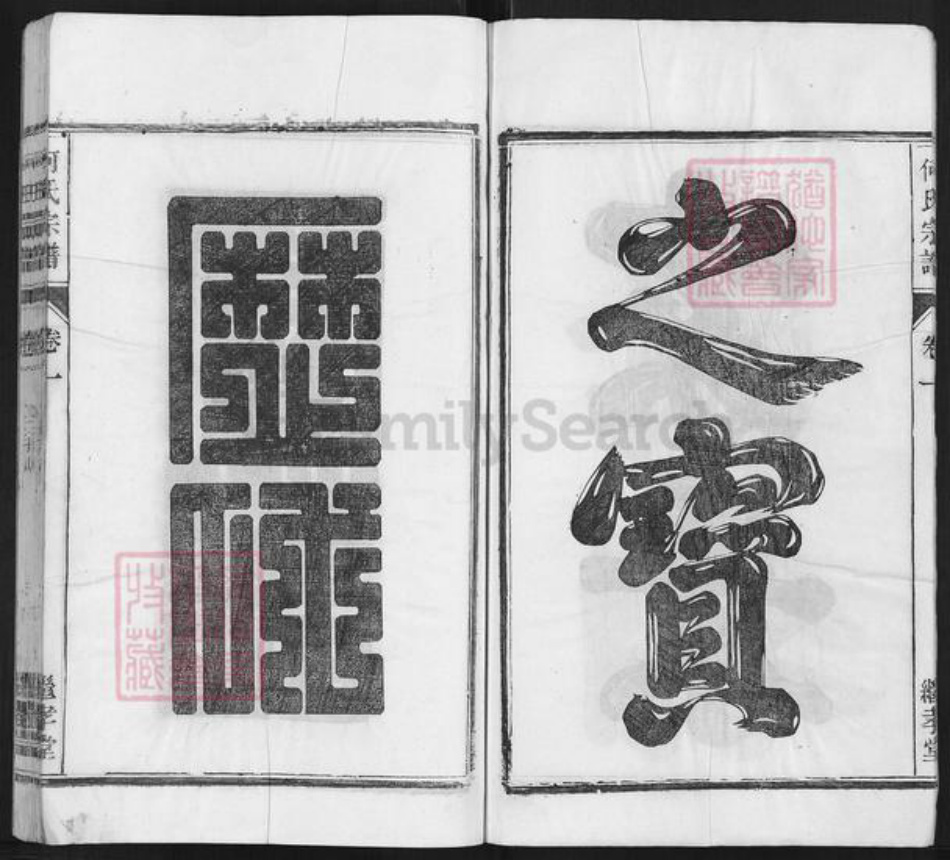 何氏宗譜
卷一
繼孝堂
之寶
歷
何氏宗譜
卷一
繼孝堂
特藏
milySearch